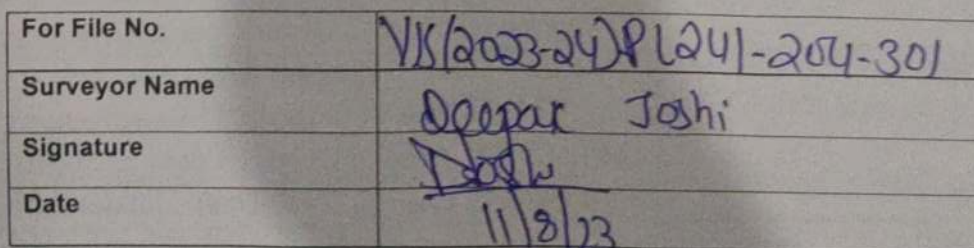 For File No. VIS(2023-24)PL241-204-301
Surveyor Name Deepak Joshi
Signature DJoshi
Date 11/8/23